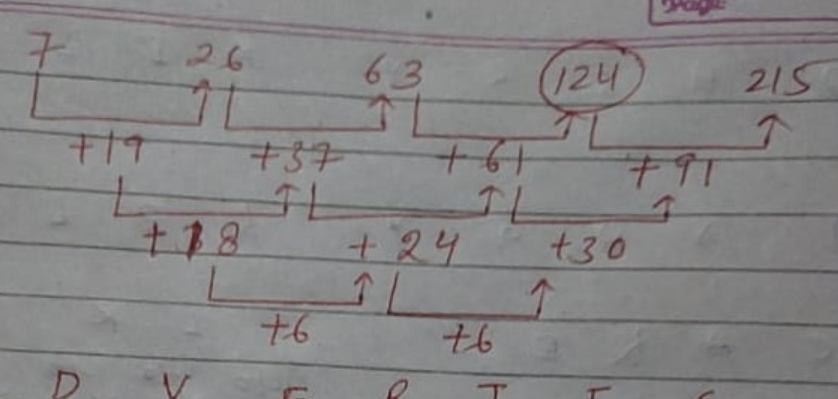 7 26 63 124 215
+19 +37 +61 +91
+18 +24 +30
+6 +6